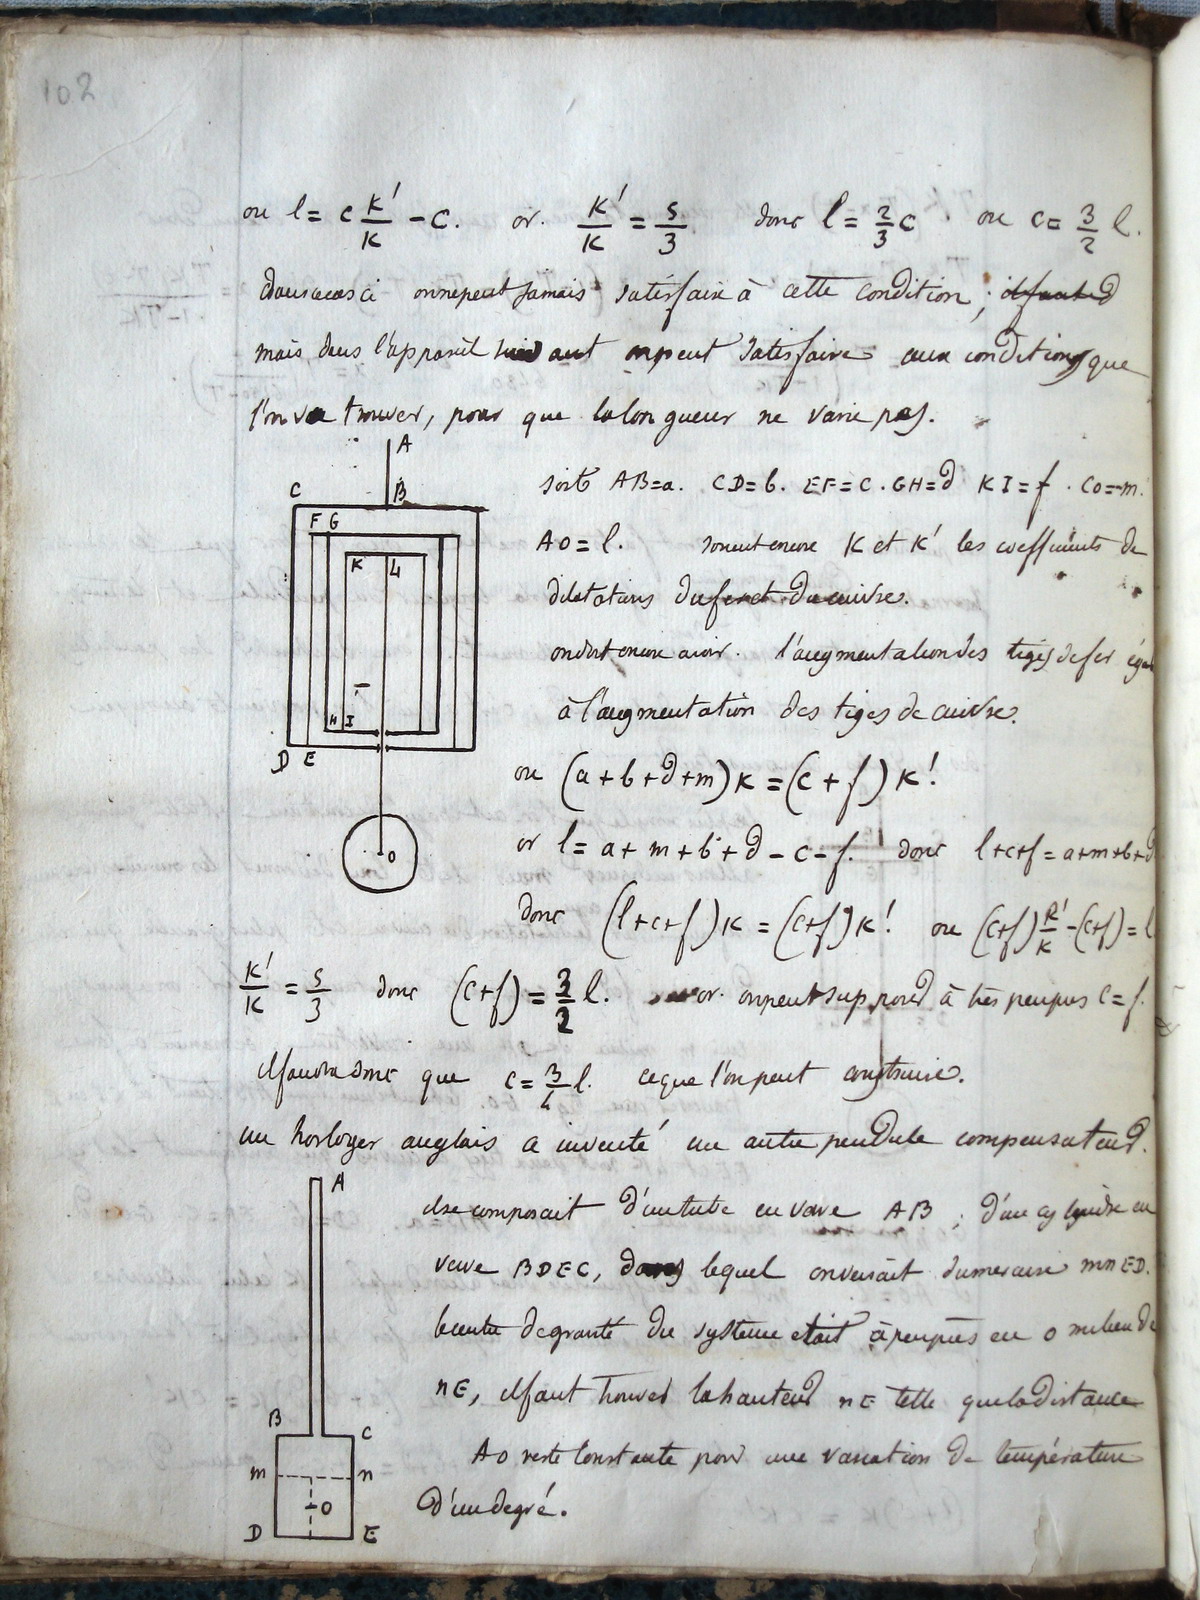 102
ou l = c K'/K - c. or. K'/K = 5/3 donc l = 2/3 c. ou c = 3/2 l.
dans ce cas ci on ne peut jamais satisfaire à cette condition;
mais dans l'appareil suivant on peut satisfaire aux conditions que
l'on va trouver, pour que la longueur ne varie pas.
A
B
C
F G
K L
H I
D E
O
soit AB=a. CD=b. EF=c. GH=d KI=f. CO=m.
AO=l. soient encore K et K' les coefficients de
dilatations du fer et du cuivre.
on doit encore avoir. l'augmentation des tiges de fer éga
à l'augmentation des tiges de cuivre.
ou (a+b+d+m)K = (c+f)K'.
or l = a+m+b+d-c-f. donc l+c+f = a+m+b+d
donc (l+c+f)K = (c+f)K'. ou (c+f)K'/K-(c+f) = l
K'/K = 5/3 donc (c+f) = 3/2 l. or. on peut supposer à très peu près c=f.
il faudra donc que c = 3/4 l. ce que l'on peut construire.
un horloger anglais a inventé un autre pendule compensateur.
A
B C
m n
O
D E
il se composait d'un tube en verre AB; d'un cylindre en
verre BDEC, dans lequel on versait du mercure mnED.
le centre de gravité du système était à peu près en o milieu de
nE, il faut trouver la hauteur nE telle que la distance
AO reste constante pour une variation de température
d'un degré.